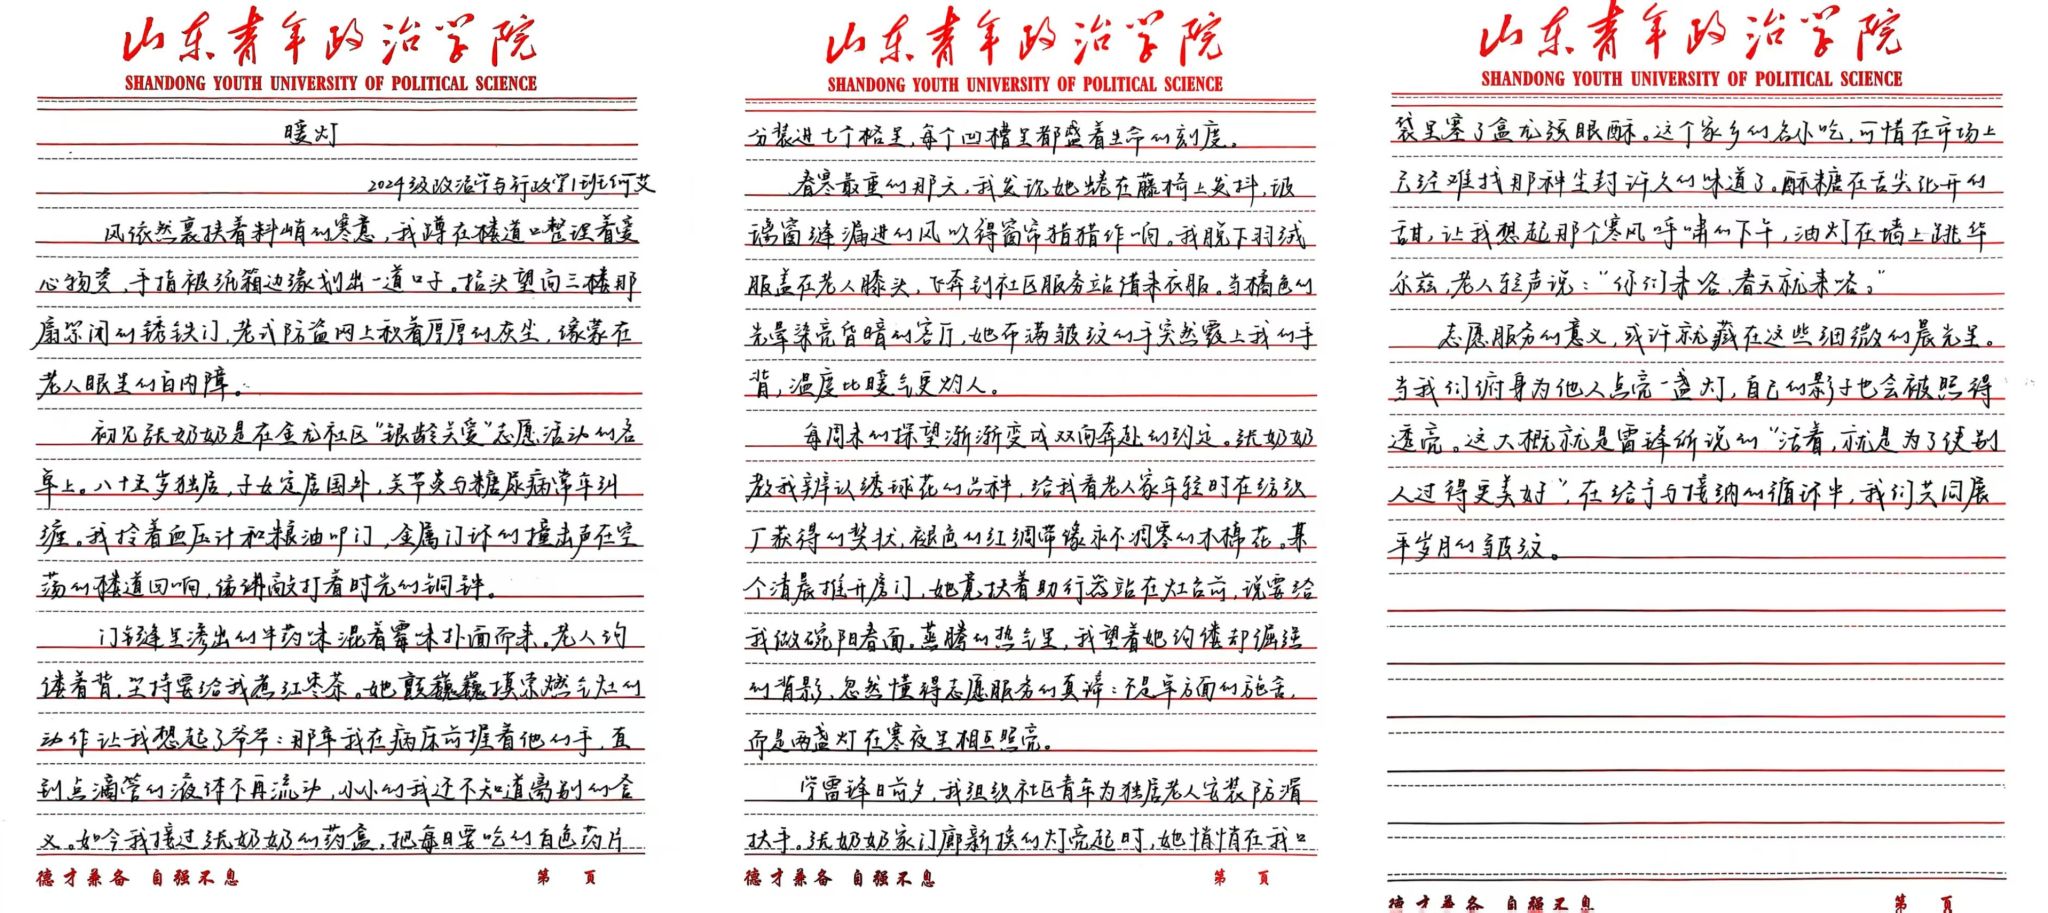 山东青年政治学院
SHANDONG YOUTH UNIVERSITY OF POLITICAL SCIENCE
暖灯
2024级政治学与行政学1班何艾
风依然裹挟着料峭的寒意，我蹲在楼道口整理着爱
心物资，手指被纸箱边缘划出一道口子。抬头望向三楼那
扇紧闭的锈铁门，老式防盗网上积着厚厚的灰尘，像蒙在
老人眼里的白内障。
初见张奶奶是在金龙社区“银龄关爱”志愿活动的名
单上。八十五岁独居，子女定居国外，关节炎与糖尿病常年纠
缠。我拎着血压计和粮油叩门，金属门环的撞击声在空
荡的楼道回响，仿佛敲打着时光的铜钟。
门缝里渗出的中药味混着霉味扑面而来。老人佝
偻着背，坚持要给我煮红枣茶。她颤巍巍摸索燃气灶的
动作让我想起了爷爷：那年我在病床前握着他的手，直
到点滴管的液体不再流动，小小的我还不知道离别的含
义。如今我接过张奶奶的药盒，把每日要吃的白色药片
德才兼备 自强不息
第 页
山东青年政治学院
SHANDONG YOUTH UNIVERSITY OF POLITICAL SCIENCE
分装进七个格里，每个凹槽里都盛着生命的刻度。
春寒最重的那天，我发现她蜷在藤椅上发抖，玻
璃窗缝漏进的风吹得窗帘猎猎作响。我脱下羽绒
服盖在老人膝头，飞奔到社区服务站借来衣服。当橘色的
光晕染亮昏暗的客厅，她布满皱纹的手突然覆上我的手
背，温度比暖气更灼人。
每周末的探望渐渐变成双向奔赴的约定。张奶奶
教我辨认绣球花的品种，给我看老人家年轻时在纺织
厂获得的奖状，褪色的红绸带像永不凋零的木棉花。某
个清晨推开房门，她竟扶着助行器站在灶台前，说要给
我做碗阳春面。蒸腾的热气里，我望着她佝偻却倔强
的背影，忽然懂得志愿服务的真谛：不是单方面的施舍，
而是两盏灯在寒夜里相互照亮。
学雷锋日前夕，我组织社区青年为独居老人安装防滑
扶手。张奶奶家门廊新换的灯亮起时，她悄悄在我口
德才兼备 自强不息
第 页
山东青年政治学院
SHANDONG YOUTH UNIVERSITY OF POLITICAL SCIENCE
袋里塞了盒龙须眼酥。这个家乡的名小吃，可惜在市场上
已经难找那种尘封许久的味道了。酥糖在舌尖化开的
甜，让我想起那个寒风呼啸的下午，油灯在墙上跳华
尔兹，老人轻声说：“你们来咯，春天就来咯。”
志愿服务的意义，或许就藏在这些细微的晨光里。
当我们俯身为他人点亮一盏灯，自己的影子也会被照得
透亮。这大概就是雷锋所说的“活着，就是为了使别
人过得更美好”，在给予与接纳的循环中，我们共同展
平岁月的皱纹。
德才兼备 自强不息
第 页